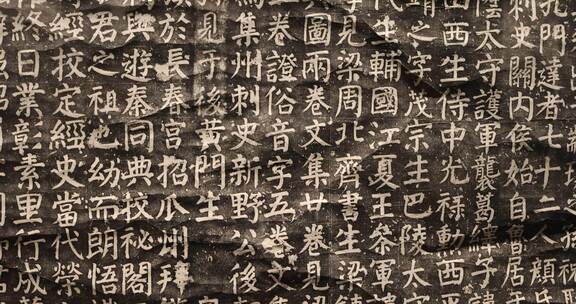 孔門達者七十二人顏
刺史關內侯始自魯居
太守護軍襲葛繹子
山西生侍中光祿勳西平
靖之字茂宗生巴陵太
生輔國江夏王叅軍
見梁周北齊書生梁鎮
圖兩卷文集廿卷見
卷證俗音字五卷文集
爲集州刺史新野公後
見于後黃門生
於長春宮招瓜州拜
與遊秦同典校祕閣
君之祖也幼而朗悟
經校定經史當代榮
終日業彰素里行成